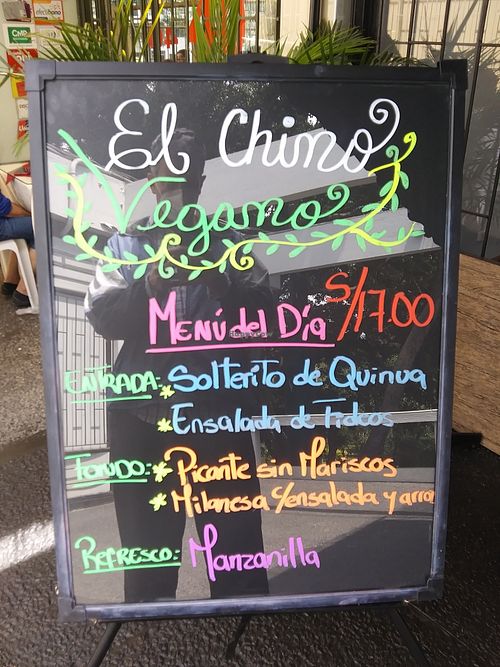 El Chino
Vegano
Menú del Día S/17.00
ENTRADA: * Solterito de Quinua
* Ensalada de Fideos
FONDO: * Picante sin Mariscos
* Milanesa c/ensalada y arroz
REFRESCO: Manzanilla
CMP